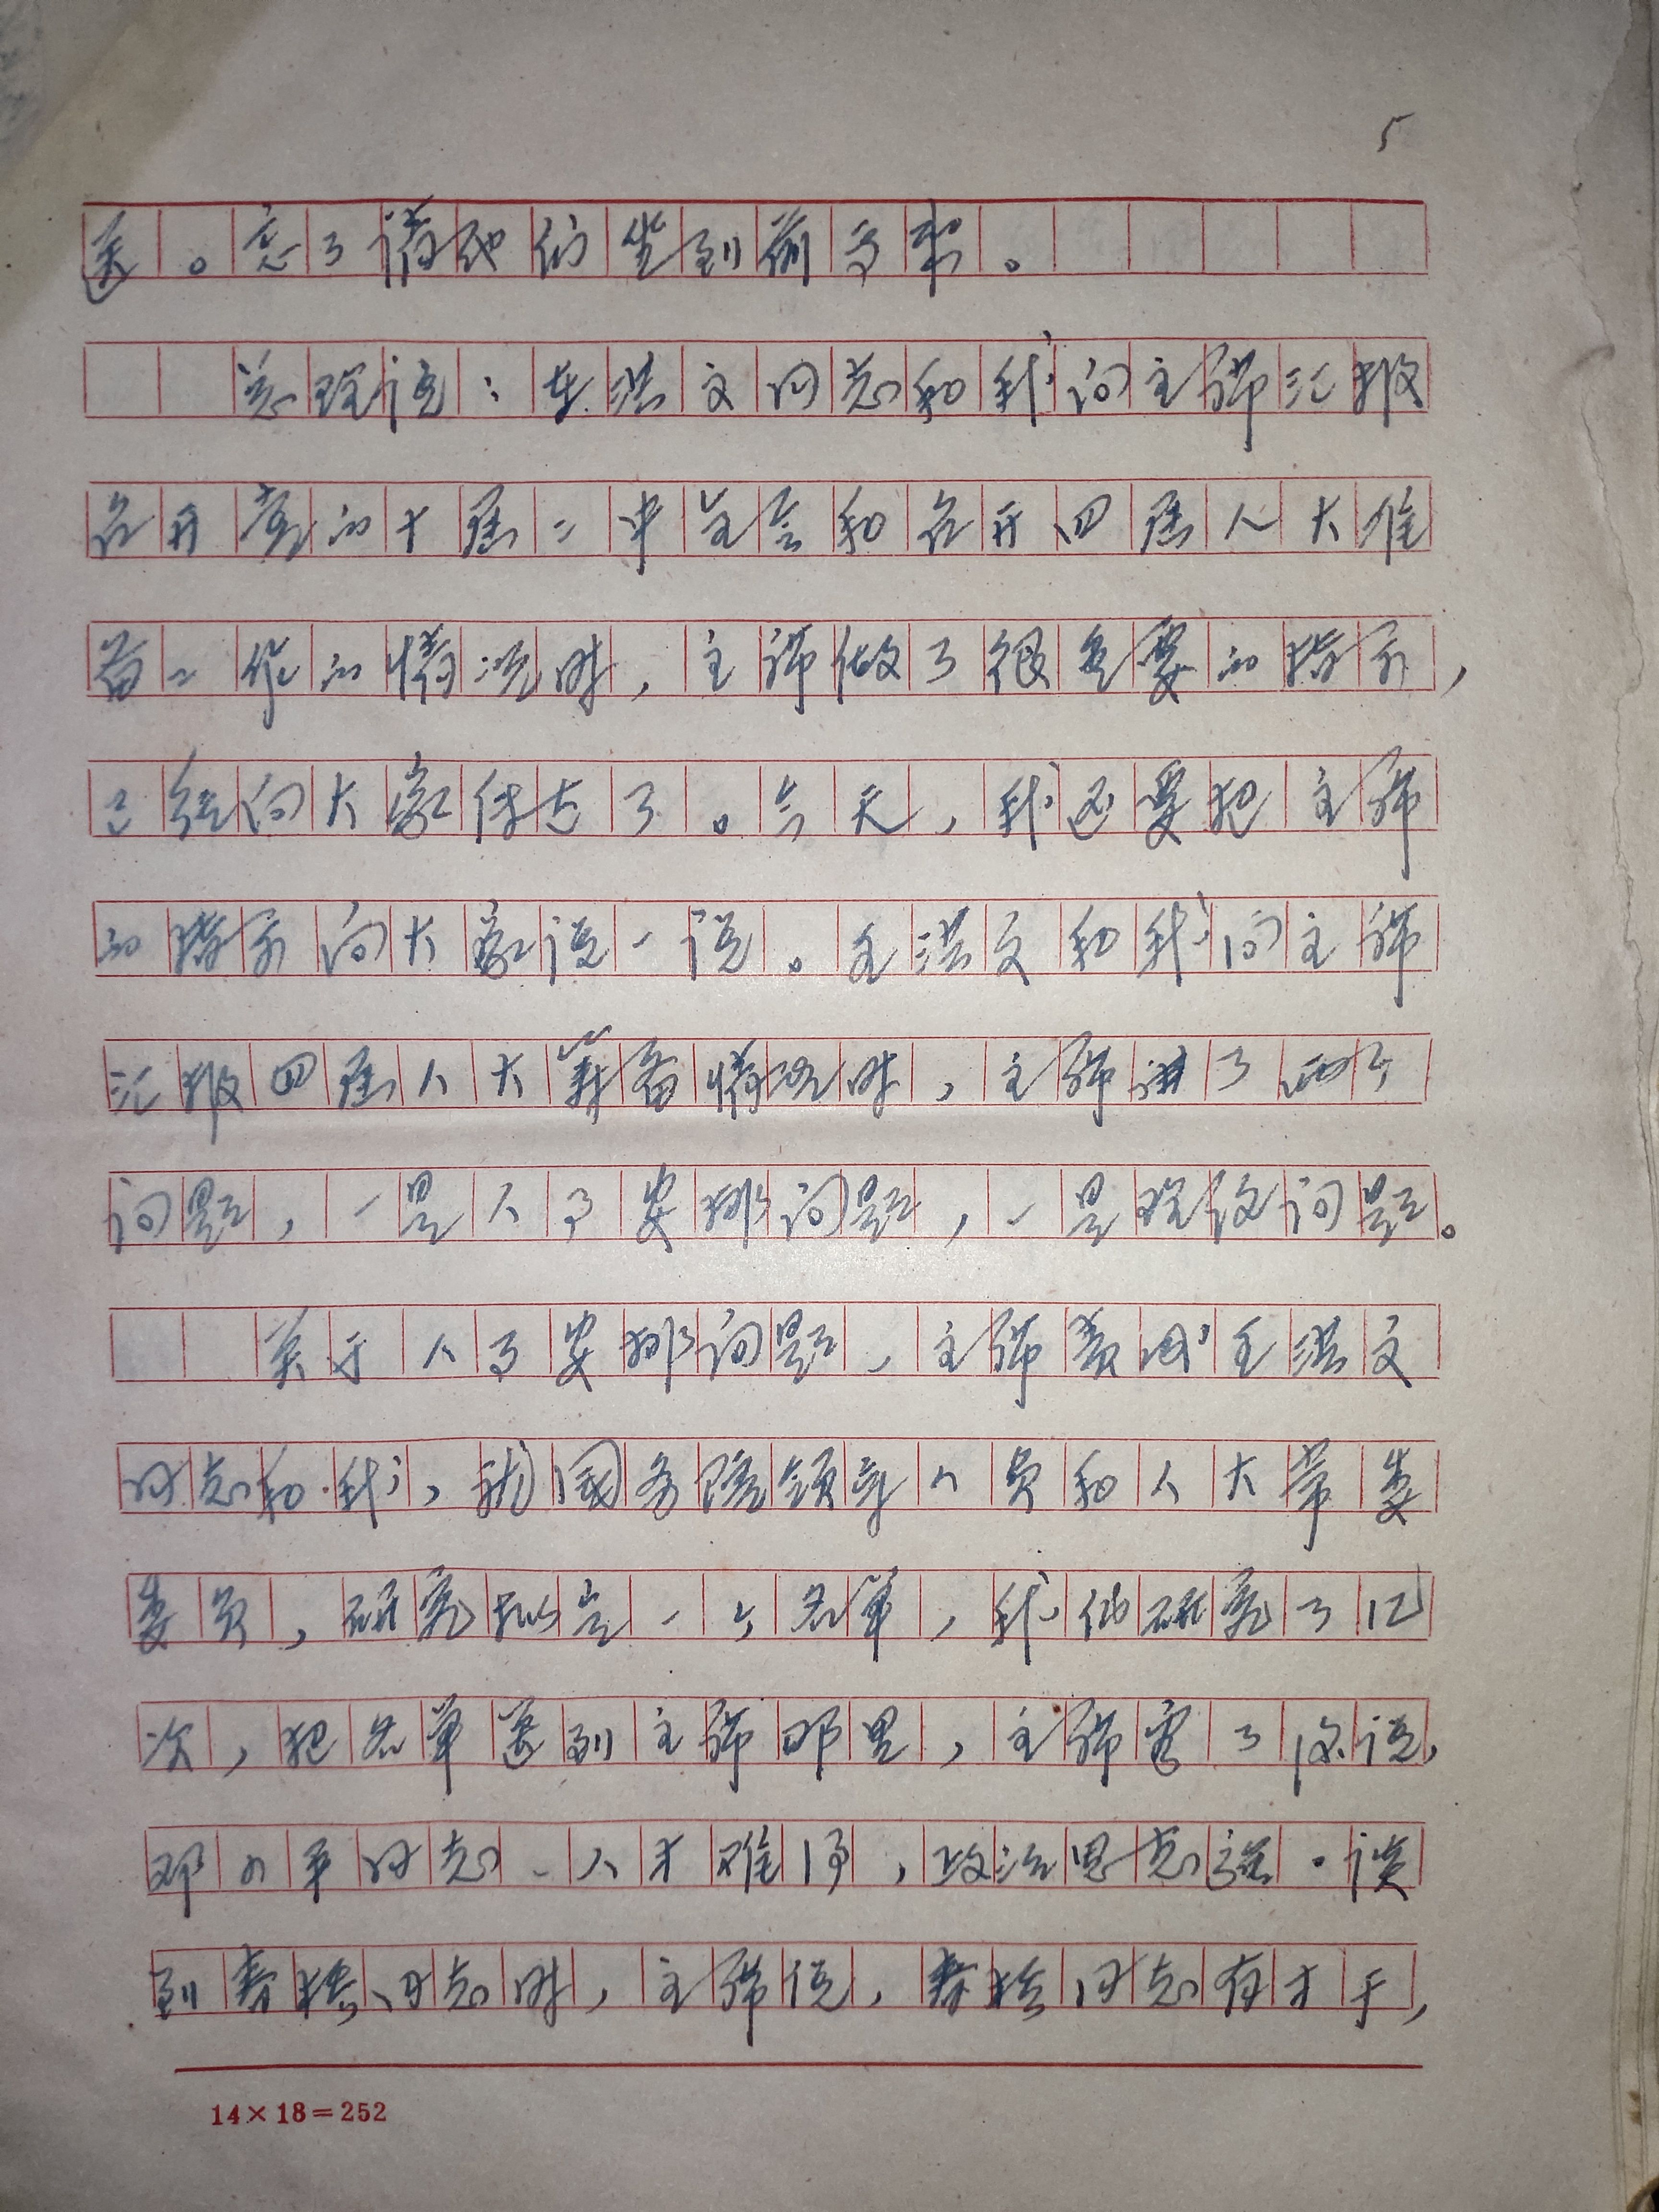 5
送。忘了请他们坐到前面来。
总理说:在洪文同志和我向主席汇报
召开党的十届二中全会和召开四届人大准
备工作的情况时,主席做了很重要的指示,
已经向大家传达了。今天,我还要把主席
的指示向大家说一说。王洪文和我向主席
汇报四届人大筹备情况时,主席讲了两个
问题,一是人事安排问题,一是理论问题。
关于人事安排问题,主席委托王洪文
同志和我,就国务院领导人员和人大常委
委员,研究拟定一个名单,我们研究了几
次,把名单送到主席那里,主席看了后说,
邓小平同志、人才难得,政治思想强。谈
到春桥同志时,主席说,春桥同志有才干,
14×18=252